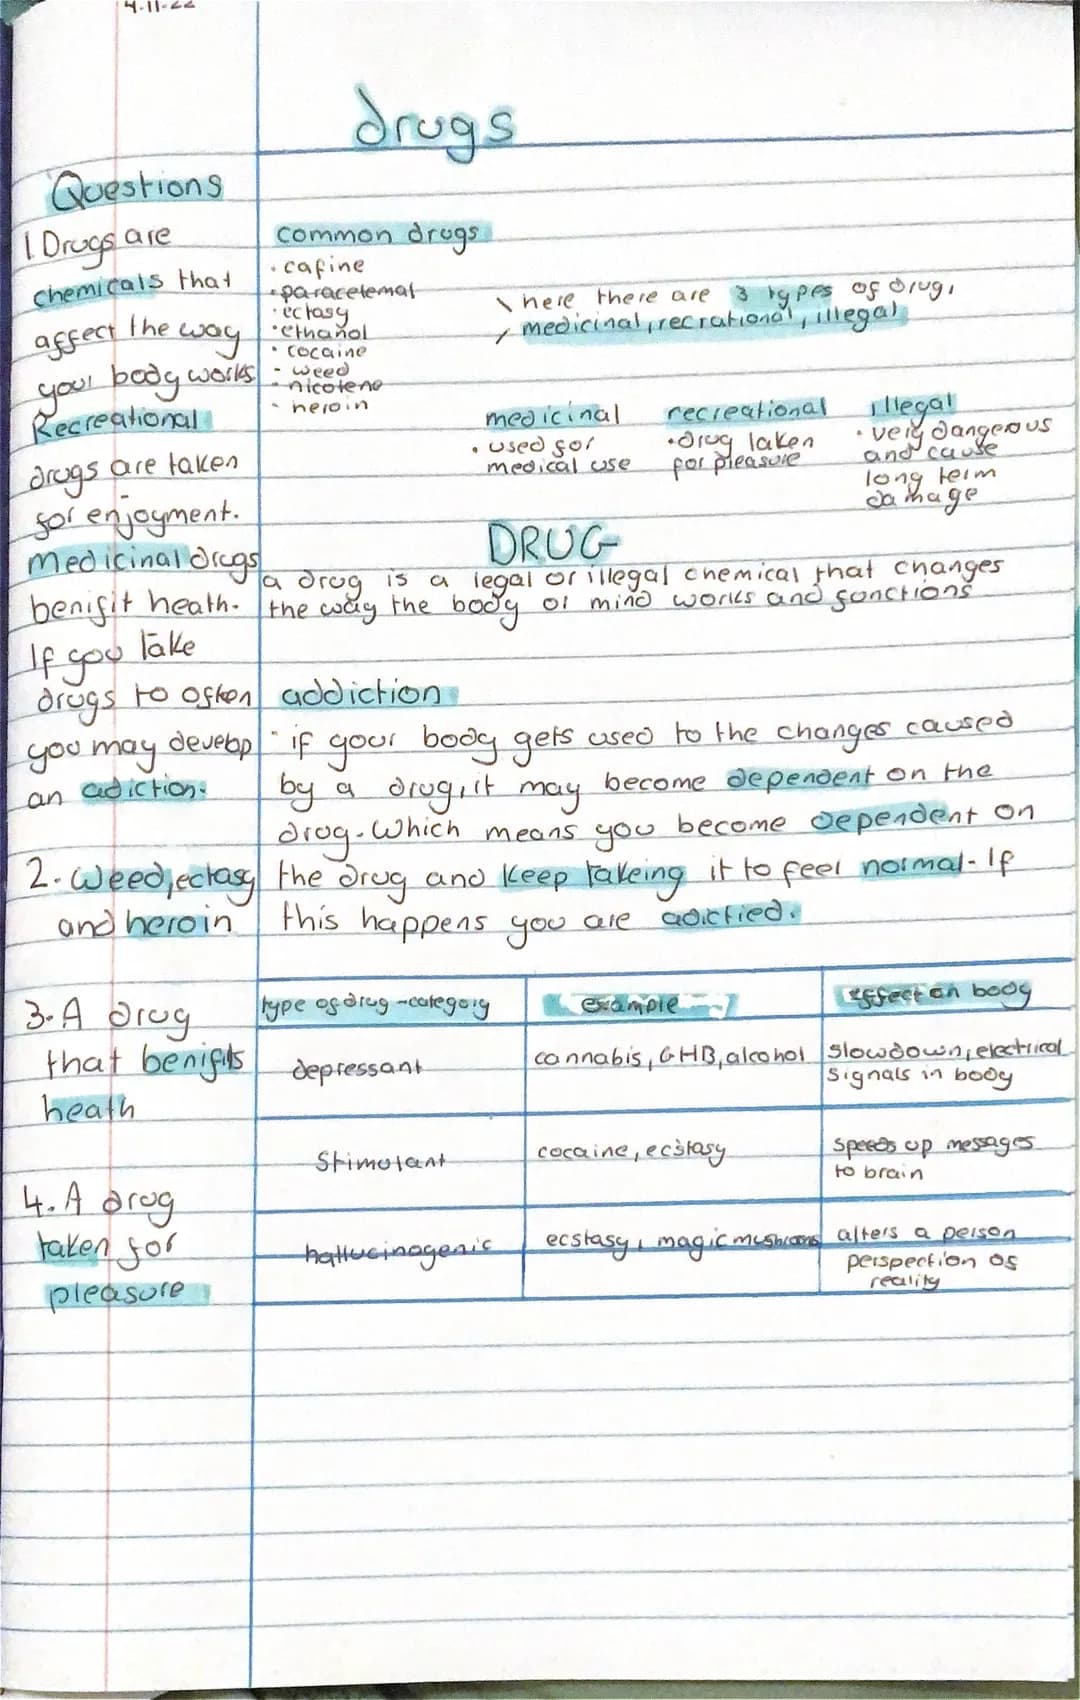 4-11-22
drugs
Questions
1. Drugs are
chemicals that
affect the way
your body works
Recreational
drugs are taken
for enjoyment.
medicinal drugs
benifit heath.
If you take
drugs to often
you may develop
an adiction.
2. Weed, ectasy
and heroin
3. A drug
that benifits
heath
4. A drug
taken for
pleasure
common drugs
· cafine
· paracetemal
· ectasy
· ethanol
· cocaine
- weed
- nicotene
- heroin
here there are 3 types of drug,
medicinal, recrational, illegal
medicinal
· used for
medical use
recreational
· drug taken
for pleasure
illegal
· very dangerous
and cause
long term
damage
DRUG
a drug is a legal or illegal chemical that changes
the way the body or mind works and fonctions
addiction
· if your body gets used to the changes caused
by a drug, it may become dependent on the
drog. Which means you become dependent on
the drug and keep takeing it to feel normal. If
this happens you are adictied.
type of drug -category example effect on body
depressant cannabis, GHB, alcohol slowdown, electrical
signals in body
Stimulant cocaine, ecstasy speeds up messages
to brain
hallucinogenic ecstasy, magic mushrooms alters a person
perspection of
reality